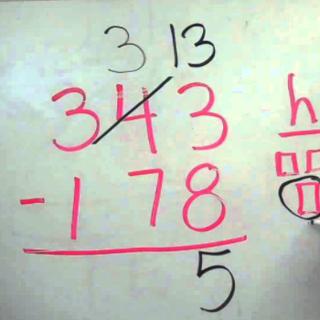 3 13
343
- 178
5
h